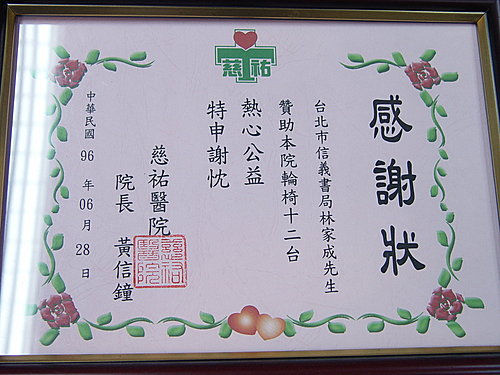 慈祐
感謝狀
台北市信義書局林家成先生
贊助本院輪椅十二台
熱心公益
特申謝忱
慈祐醫院
院長 黃信鐘
慈祐醫院
中華民國 96 年 06 月 28 日